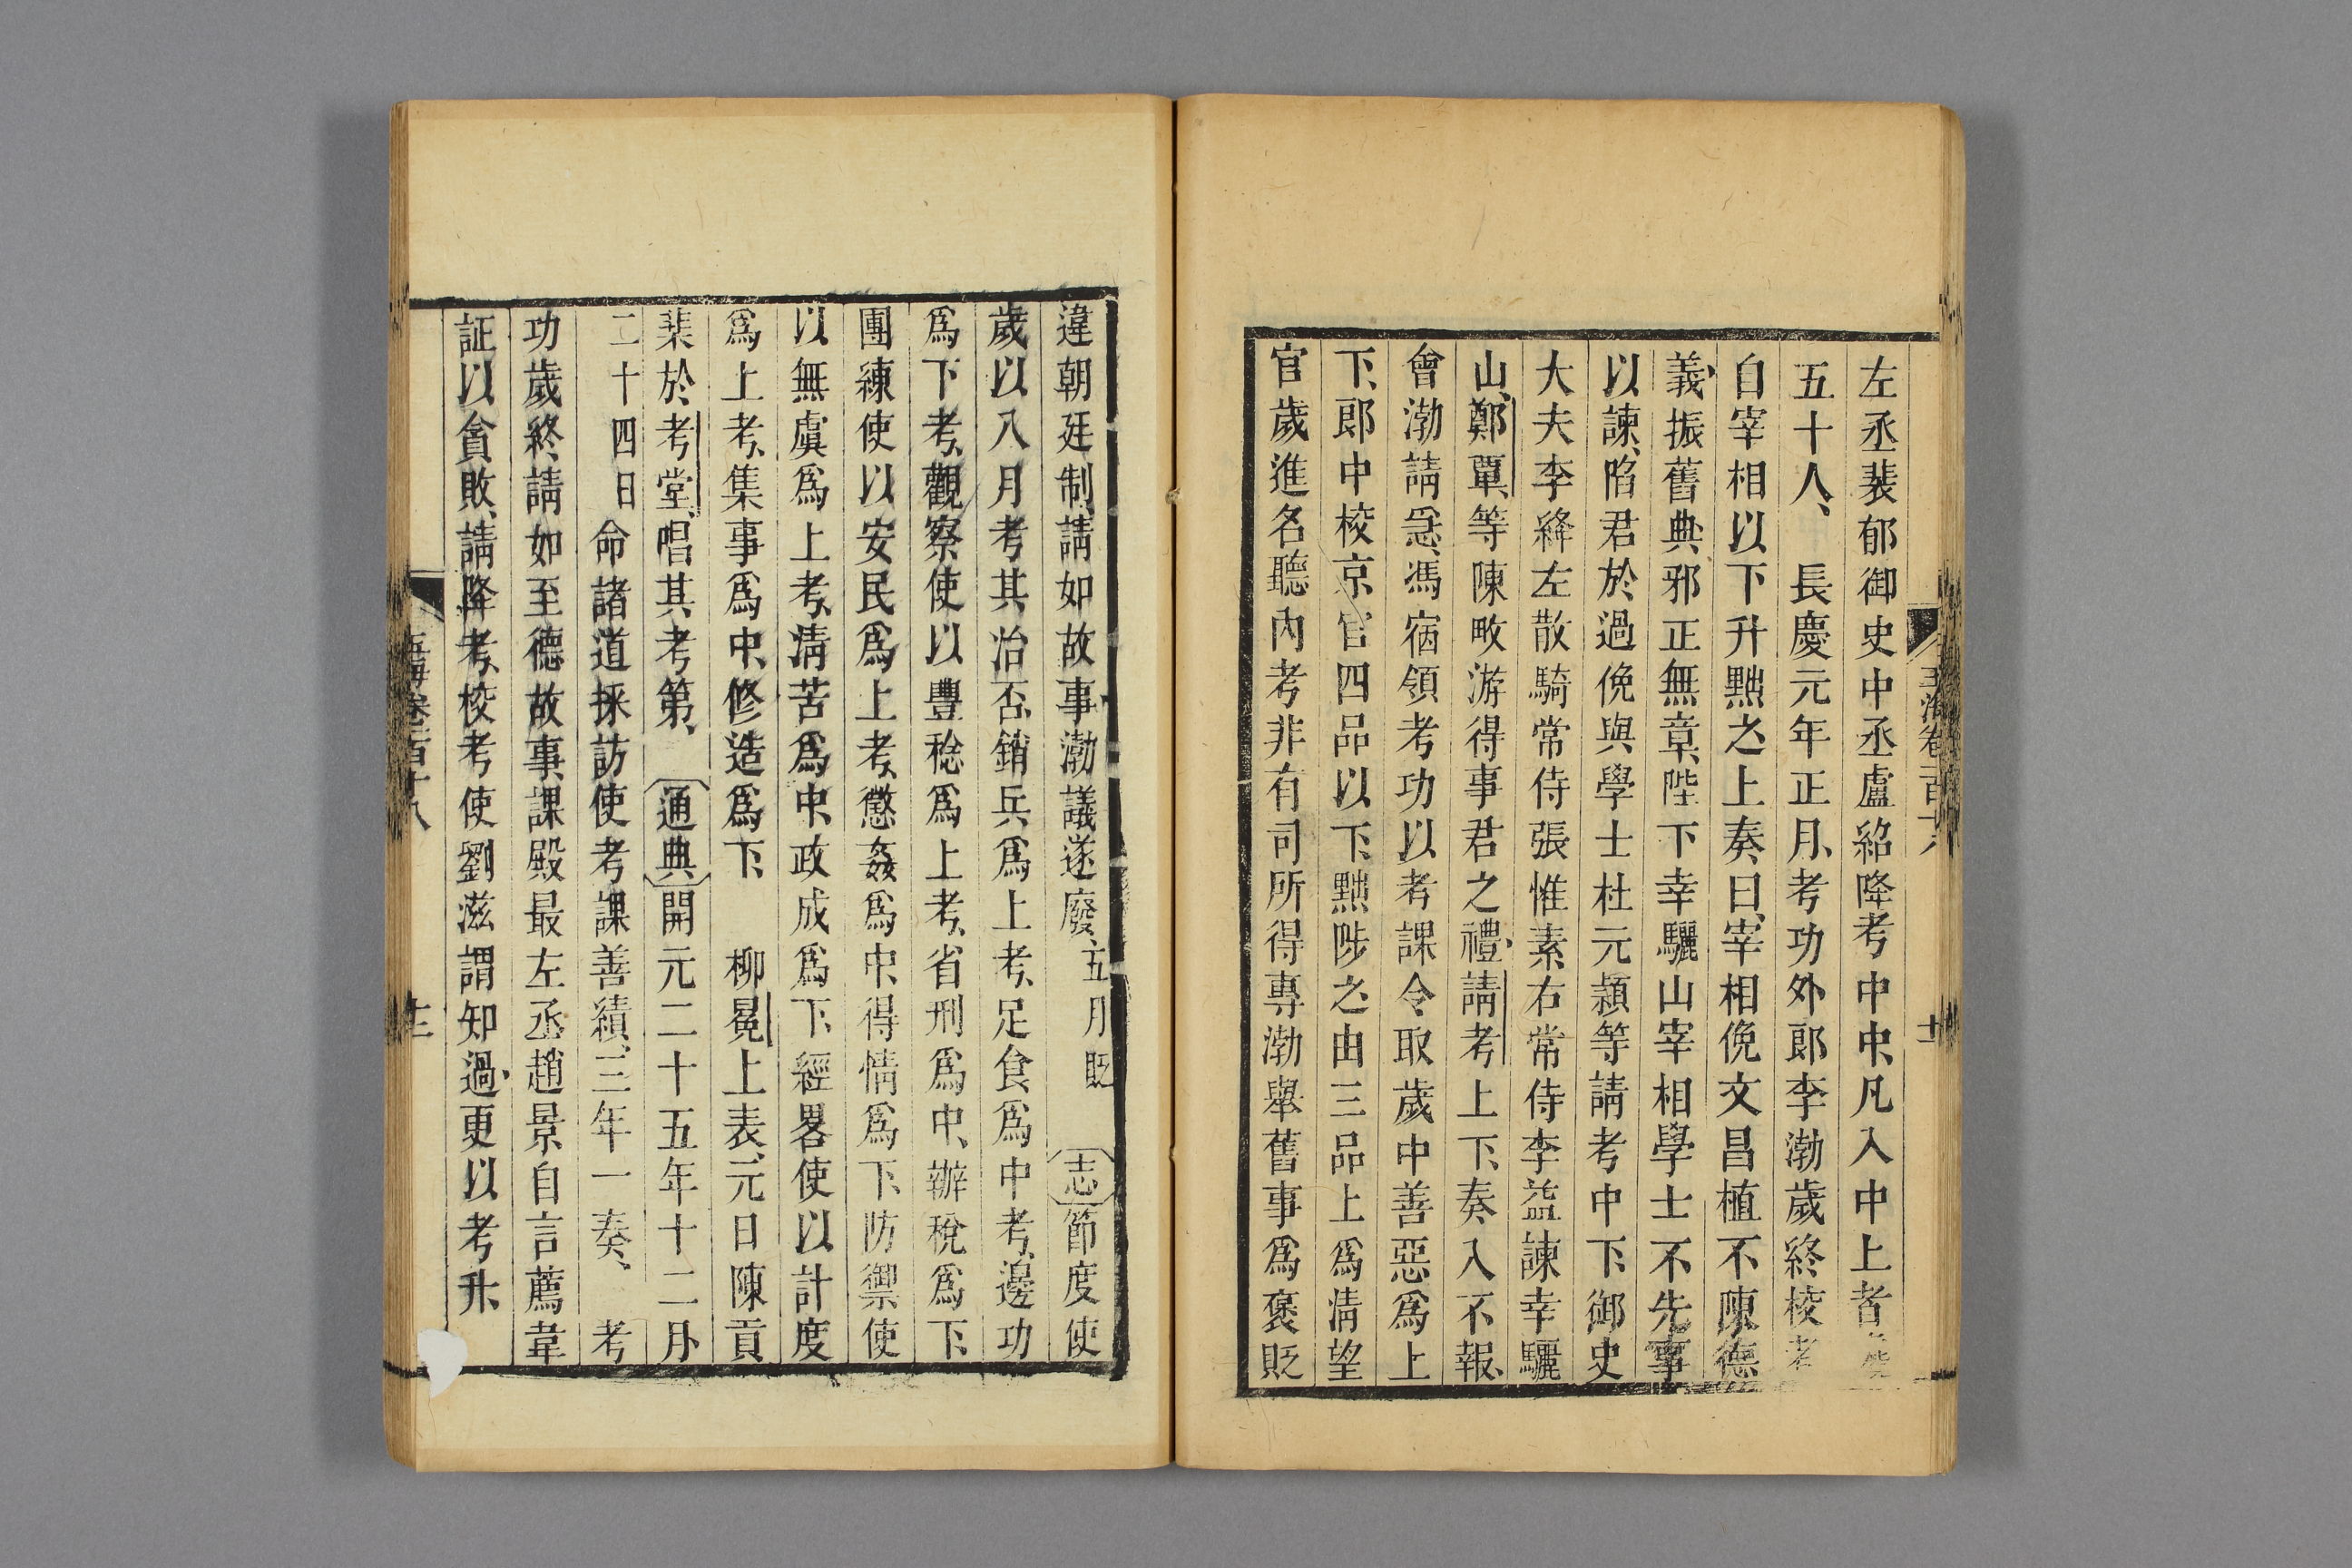 左丞裴郁御史中丞盧紹降考中中凡入中上者
五十人長慶元年正月考功外郎李渤歲終校考
自宰相以下升黜之上奏曰宰相俛文昌植不陳德
義振舊典邪正無章陛下幸驪山宰相學士不先事
以諫陷君於過俛與學士杜元頴等請考中下御史
大夫李絳左散騎常侍張惟素右常侍李益諫幸驪
山鄭覃等陳畋游得事君之禮請考上下奏入不報
會渤請急馮宿領考功以考課令取歲中善惡爲上
下郎中校京官四品以下黜陟之由三品上爲清望
官歲進名聽內考非有司所得專渤舉舊事爲褒貶
違朝廷制請如故事渤議遂廢五月貶志節度使
歲以八月考其治否銷兵爲上考足食爲中考邊功
爲下考觀察使以豐稔爲上考省刑爲中辦稅爲下
團練使以安民爲上考懲姦爲中得情爲下防禦使
以無虞爲上考清苦爲中政成爲下經畧使以計度
爲上考集事爲中修造爲下柳冕上表元日陳貢
棐於考堂唱其考第通典開元二十五年十二月
二十四日命諸道採訪使考課善績三年一奏考
功歲終請如至德故事課殿最左丞趙景自言薦韋
証以貪敗請降考校考使劉滋謂知過更以考升
玉海卷一百十八